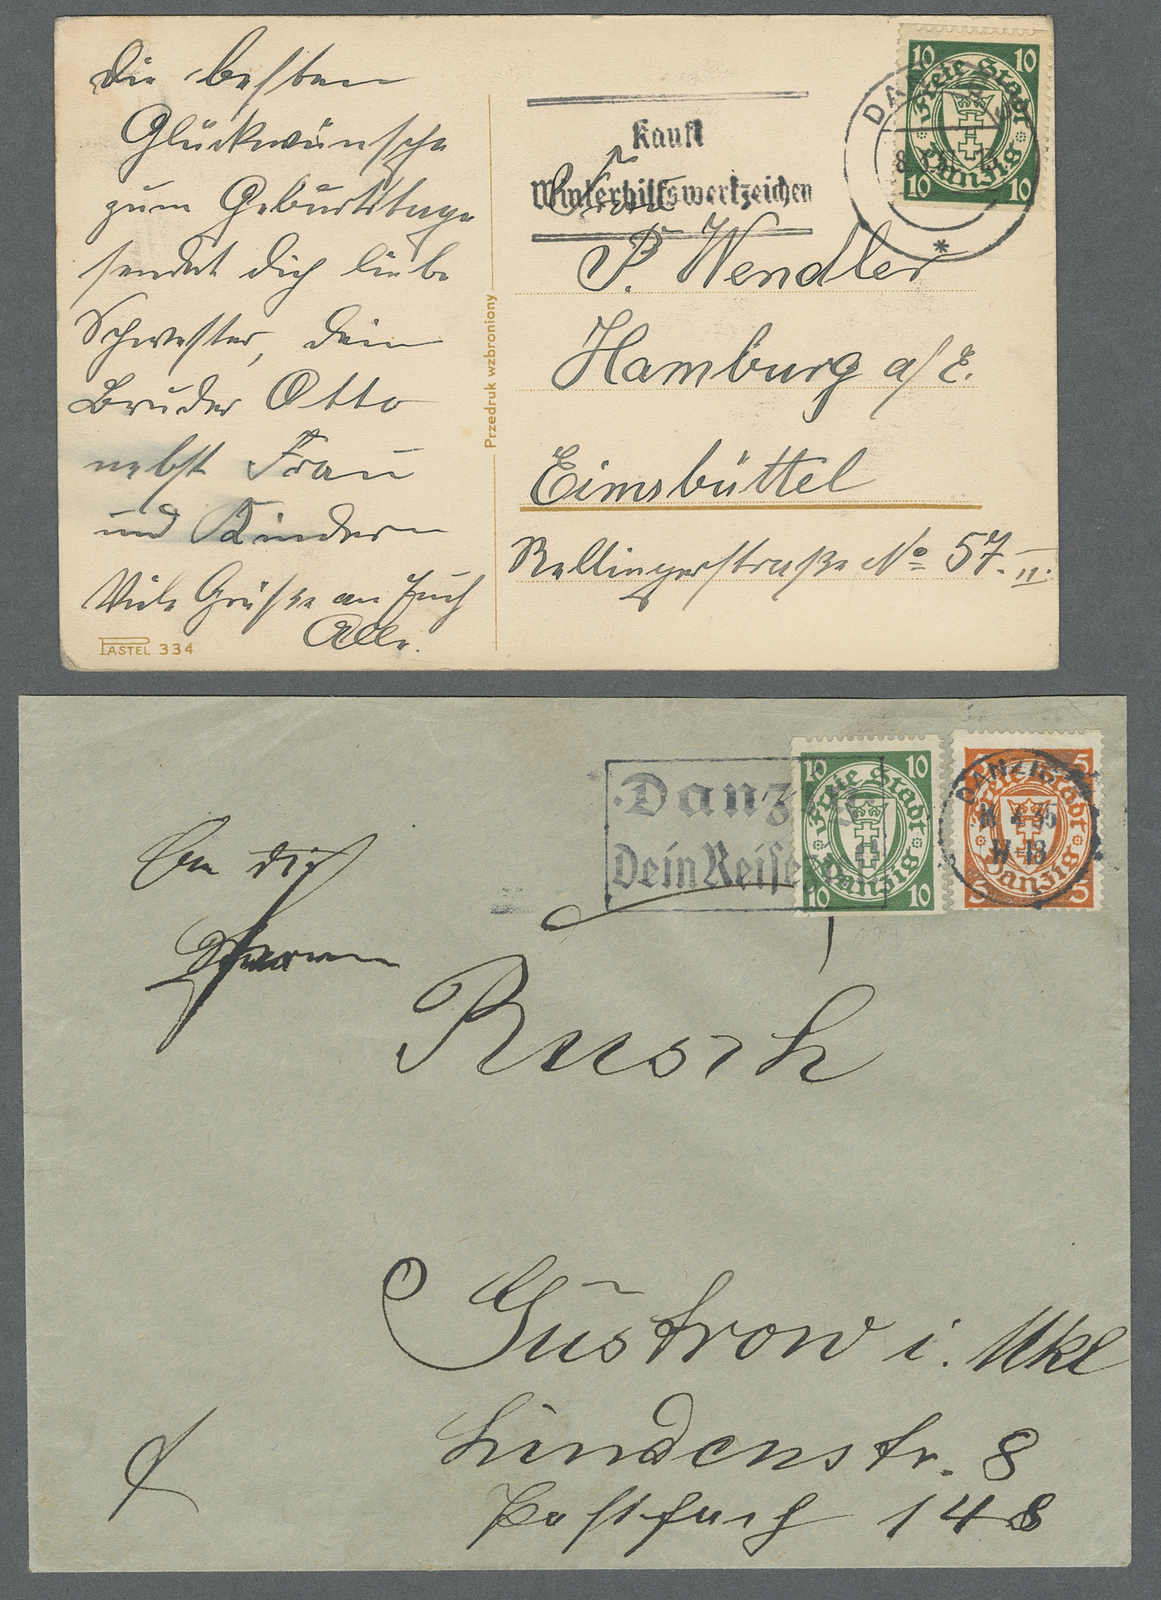 Die besten
Glückwünsche
zum Geburtstage
sendet dich liebe
Schwester, dein
Bruder Otto
nebst Frau
und Kindern
Viele Grüße an Euch
Alle.
PASTEL 334
Przedruk wzbroniony
Kauft
Winterhilfswerkzeichen
DA
10 10
Freie Stadt
Danzig
10 10
Frau
P. Wendler
Hamburg a/E.
Eimsbüttel
Rellingerstraße No 57. II.
Danzig
Dein Reise
10 10
Freie Stadt
Danzig
10 10
5
Freie Stadt
Danzig
5 5
DANZIG
4 35
17-18
An die
Rusch
Güstrow i. Mkl
Lindenstr. 8
Postfach 148